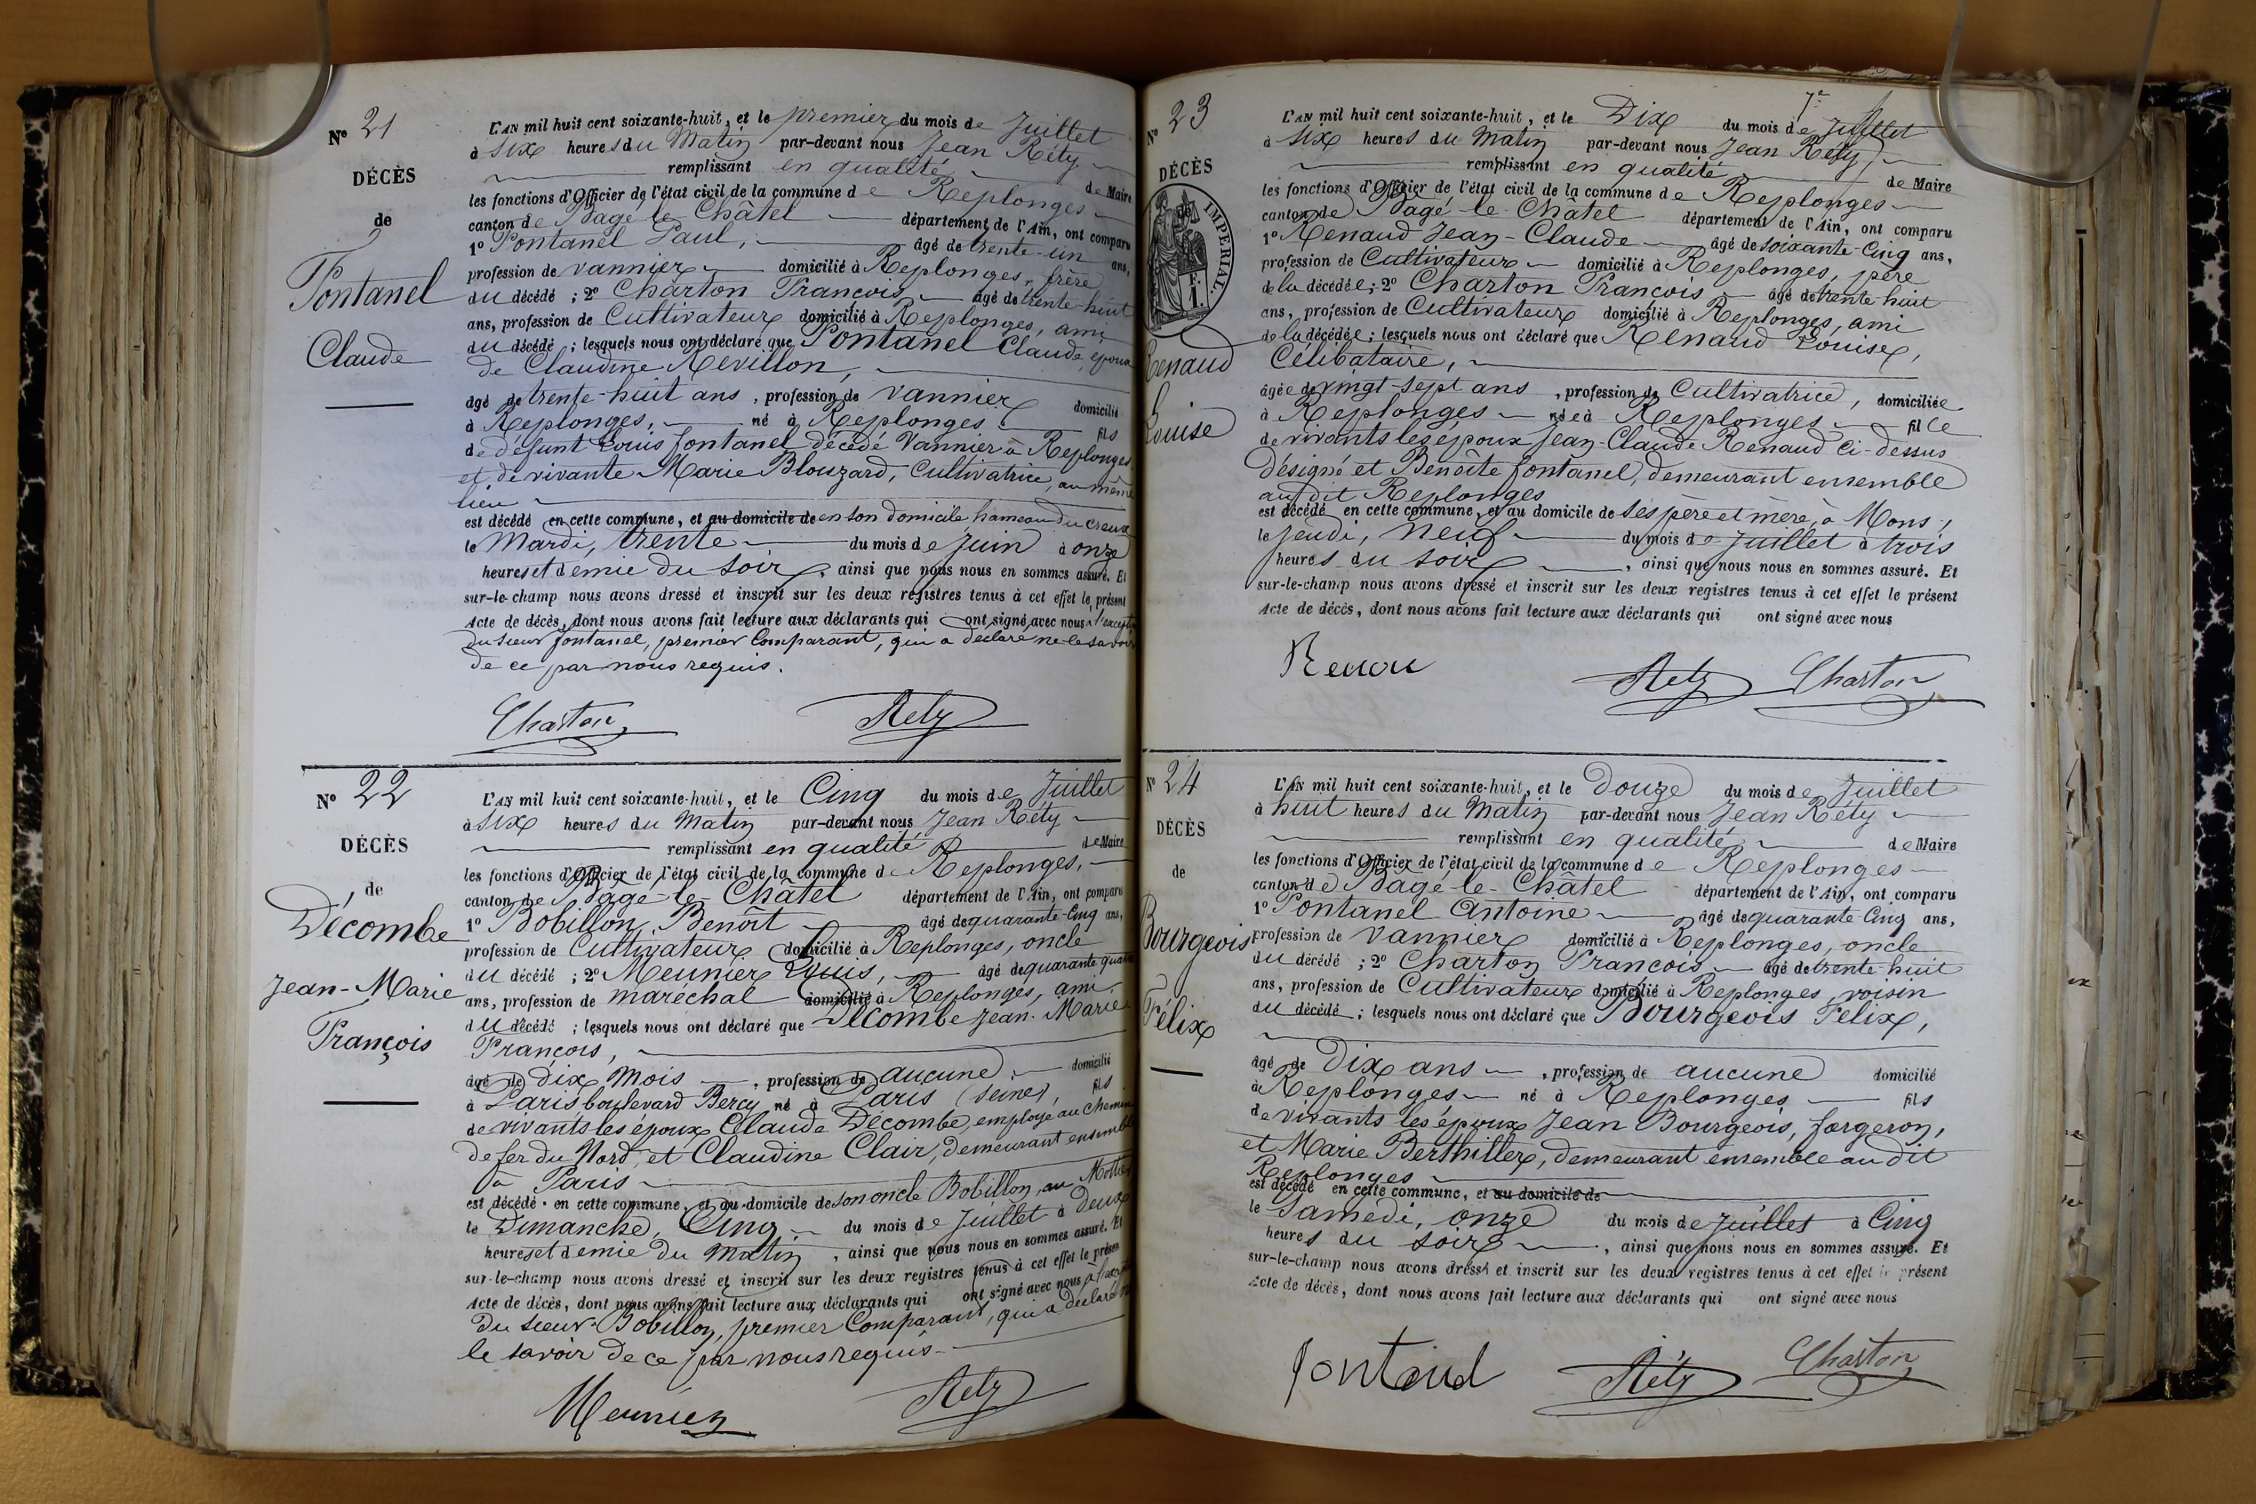 Nº 21
DÉCÈS
de
Fontanel
Claude
L'AN mil huit cent soixante-huit, et le premier du mois de Juillet
à six heures du Matin par-devant nous Jean Réty
remplissant en qualité de Maire
les fonctions d'Officier de l'état civil de la commune de Replonges
canton de Bagé-le-Châtel département de l'Ain, ont comparu
1º Fontanel Paul, âgé de trente-un ans,
profession de vannier domicilié à Replonges, frère
du décédé ; 2º Charton François âgé de trente-huit
ans, profession de Cultivateur domicilié à Replonges, ami
du décédé ; lesquels nous ont déclaré que Fontanel Claude, époux
de Claudine Revillon,
âgé de trente-huit ans, profession de vannier domicilié
à Replonges, né à Replonges fils
de défunt Louis fontanel, décédé Vannier à Replonges
et de vivante Marie Blouzard, Cultivatrice, au même
lieu
est décédé en cette commune, et au domicile de en son domicile hameau du creux
le Mardi, trente du mois de Juin à onze
heures et demie du soir, ainsi que nous nous en sommes assuré. Et
sur-le-champ nous avons dressé et inscrit sur les deux registres tenus à cet effet le présent
Acte de décès, dont nous avons fait lecture aux déclarants qui ont signé avec nous à l'exception
du sieur fontanel, premier Comparant, qui a déclaré ne le savoir
de ce par nous requis.
Charton Réty
Nº 22
DÉCÈS
de
Décombe
Jean-Marie
François
L'AN mil huit cent soixante-huit, et le Cinq du mois de Juillet
à six heures du Matin par-devant nous Jean Réty
remplissant en qualité de Maire
les fonctions d'Officier de l'état civil de la commune de Replonges,
canton de Bagé-le-Châtel département de l'Ain, ont comparu
1º Bobillon Benoît âgé de quarante-cinq ans,
profession de Cultivateur domicilié à Replonges, oncle
du décédé ; 2º Meunier Louis, âgé de quarante-quatre
ans, profession de maréchal domicilié à Replonges, ami
du décédé ; lesquels nous ont déclaré que Décombe Jean-Marie
François,
âgé de dix Mois, profession de aucune, domicilié
à Paris boulevard Bercy né à Paris (Seine), fils
de vivants les époux Claude Décombe, employé au Chemin
de fer du Nord, et Claudine Clair, demeurant ensemble
à Paris
est décédé en cette commune, et au domicile de son oncle Bobillon, au
le Dimanche, Cinq du mois de Juillet à Deux
heures et demie du matin, ainsi que nous nous en sommes assuré. Et
sur-le-champ nous avons dressé et inscrit sur les deux registres tenus à cet effet le présent
Acte de décès, dont nous avons fait lecture aux déclarants qui ont signé avec nous à l'exception
du sieur Bobillon, premier Comparant, qui a déclaré ne
le savoir de ce par nous requis
Meunier Réty
Nº 23
DÉCÈS
de
IMPÉRIAL
1 F.
Renaud
Louise
7e
L'AN mil huit cent soixante-huit, et le Dix du mois de Juillet
à six heures du Matin par-devant nous Jean Réty
remplissant en qualité de Maire
les fonctions d'Officier de l'état civil de la commune de Replonges
canton de Bagé-le-Châtel département de l'Ain, ont comparu
1º Renaud Jean-Claude âgé de soixante-Cinq ans,
profession de Cultivateur domicilié à Replonges, père
de la décédée ; 2º Charton François âgé de trente huit
ans, profession de Cultivateur domicilié à Replonges, ami
de la décédée ; lesquels nous ont déclaré que Renaud Louise,
Célibataire,
âgée de vingt-sept ans, profession de Cultivatrice, domiciliée
à Replonges née à Replonges fille
de vivants les époux Jean-Claude Renaud Ci-dessus
désigné et Benoîte fontanel, demeurant ensemble
au dit Replonges
est décédé en cette commune, et au domicile de ses père et mère, à Mons,
le Jeudi, Neuf du mois de Juillet à trois
heures du soir, ainsi que nous nous en sommes assuré. Et
sur-le-champ nous avons dressé et inscrit sur les deux registres tenus à cet effet le présent
Acte de décès, dont nous avons fait lecture aux déclarants qui ont signé avec nous
Renou Réty Charton
Nº 24
DÉCÈS
de
Bourgeois
Félix
L'AN mil huit cent soixante-huit, et le Douze du mois de Juillet
à huit heures du Matin par-devant nous Jean Réty
remplissant en qualité de Maire
les fonctions d'Officier de l'état civil de la commune de Replonges
canton de Bagé-le-Châtel département de l'Ain, ont comparu
1º Fontanel Antoine âgé de quarante-Cinq ans,
profession de vannier domicilié à Replonges, oncle
du décédé ; 2º Charton François âgé de trente-huit
ans, profession de Cultivateur domicilié à Replonges, voisin
du décédé ; lesquels nous ont déclaré que Bourgeois Félix,
âgé de Dix ans, profession de aucune domicilié
à Replonges né à Replonges fils
de vivants les époux Jean Bourgeois, forgeron,
et Marie Berthiller, demeurant ensemble au dit
Replonges
est décédé en cette commune, et au domicile de
le samedi, onze du mois de Juillet à Cinq
heures du soir, ainsi que nous nous en sommes assuré. Et
sur-le-champ nous avons dressé et inscrit sur les deux registres tenus à cet effet le présent
Acte de décès, dont nous avons fait lecture aux déclarants qui ont signé avec nous
Réty Charton